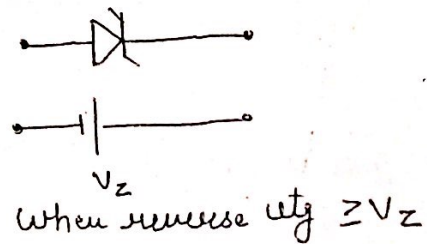 Vz
when reverse vtg ≥ Vz